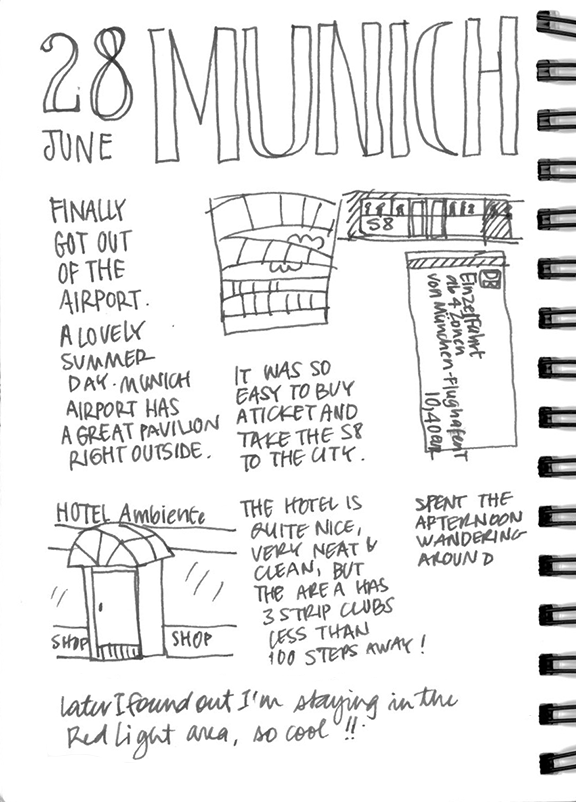 28
JUNE
MUNICH
FINALLY
GOT OUT
OF THE
AIRPORT.
A LOVELY
SUMMER
DAY. MUNICH
AIRPORT HAS
A GREAT PAVILION
RIGHT OUTSIDE.
S8
DB
Einzelfahrt
ab 4 Zonen
von München-Flughafen T
10,40 EUR
IT WAS SO
EASY TO BUY
A TICKET AND
TAKE THE S8
TO THE CITY.
HOTEL Ambiente
SHOP
SHOP
THE HOTEL IS
QUITE NICE,
VERY NEAT &
CLEAN, BUT
THE AREA HAS
3 STRIP CLUBS
LESS THAN
100 STEPS AWAY!
SPENT THE
AFTERNOON
WANDERING
AROUND
Later I found out I'm staying in the
Red Light area, so cool!!